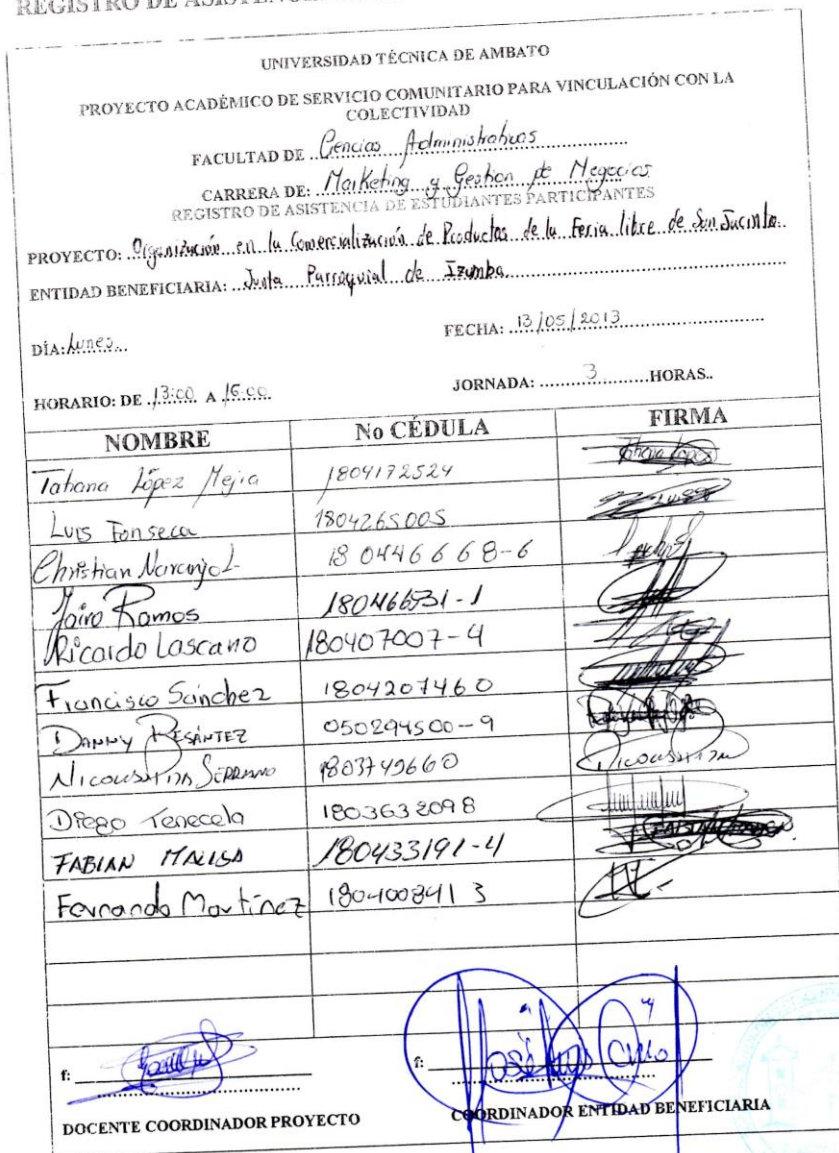 REGISTRO DE ASISTENCIA
UNIVERSIDAD TÉCNICA DE AMBATO
PROYECTO ACADÉMICO DE SERVICIO COMUNITARIO PARA VINCULACIÓN CON LA
COLECTIVIDAD
FACULTAD DE Ciencias Administrativas
CARRERA DE: Marketing y Gestion de Negocios
REGISTRO DE ASISTENCIA DE ESTUDIANTES PARTICIPANTES
PROYECTO: Organización en la Comercialización de Productos de la Feria libre de San Jacinto.
ENTIDAD BENEFICIARIA: Junta Parroquial de Izamba
DÍA: Lunes FECHA: 13/05/2013
HORARIO: DE 13:00 A 16:00 JORNADA: 3 HORAS..
NOMBRE No CÉDULA FIRMA
Tatiana López Mejia 1804172524 Tatiana López
Luis Fonseca 1804265005
Christian Naranjo L. 18 0446668-6
Jairo Ramos 180466531-1
Ricardo Lascano 180407007-4
Francisco Sánchez 1804207460
DANNY PESÁNTEZ 050294500-9
SERRANO 1803749660
Diego Tenecela 1803632098
FABIAN MALISA 180433191-4
Fernando Martínez 1804008413
f: f: José Luis
DOCENTE COORDINADOR PROYECTO COORDINADOR ENTIDAD BENEFICIARIA